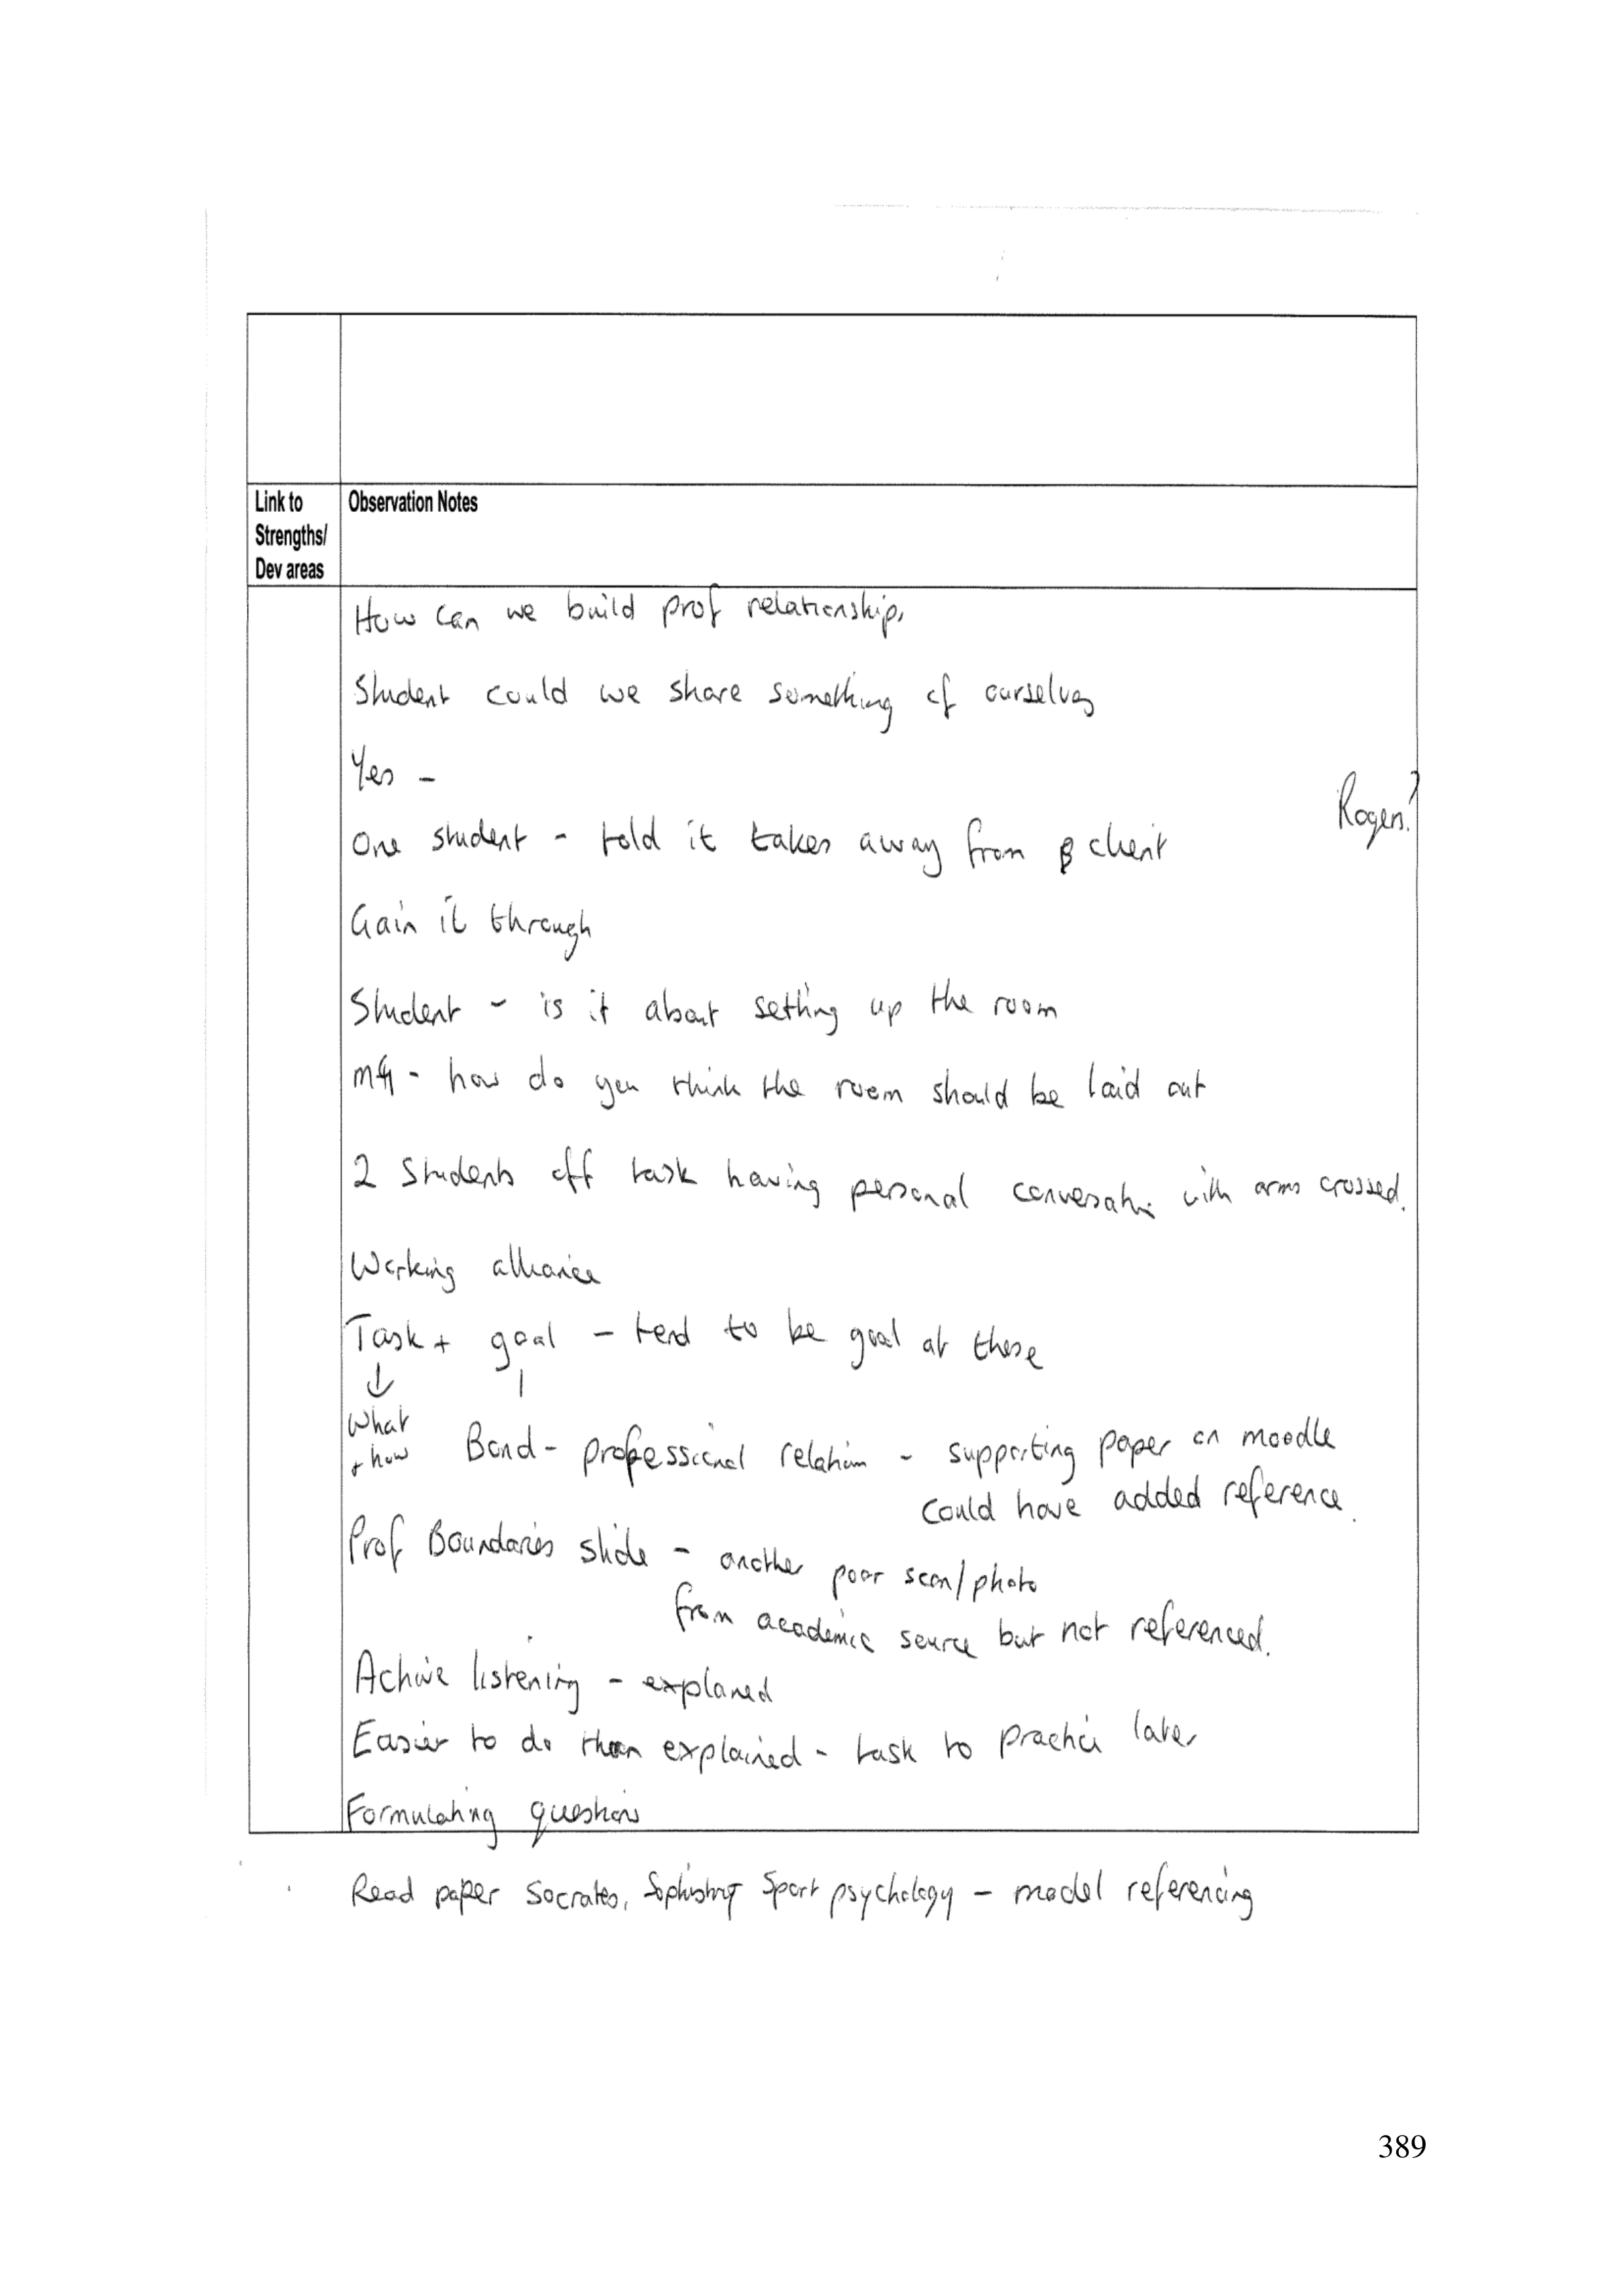 Link to
Strengths/
Dev areas
Observation Notes
How can we build prof relationship,
Student could we share something of ourselves
Yes -
Rogers?
One student - told it takes away from client
Gain it through
Student - is it about setting up the room
- how do you think the room should be laid out
2 Students off task having personal conversation with arms crossed.
Working alliance
Task + goal - tend to be goal at these
What
+ how
Bond - professional relation - supporting paper on moodle
could have added reference.
Prof Boundaries slide - another poor scan/photo
from academic source but not referenced.
Active listening - explained
Easier to do than explained - task to practice later
Formulating questions
Read paper Socrates, Sophistry Sport psychology - model referencing
389